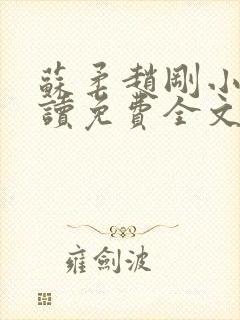 蘇柔趙剛小
讀免費全文
雍劍波